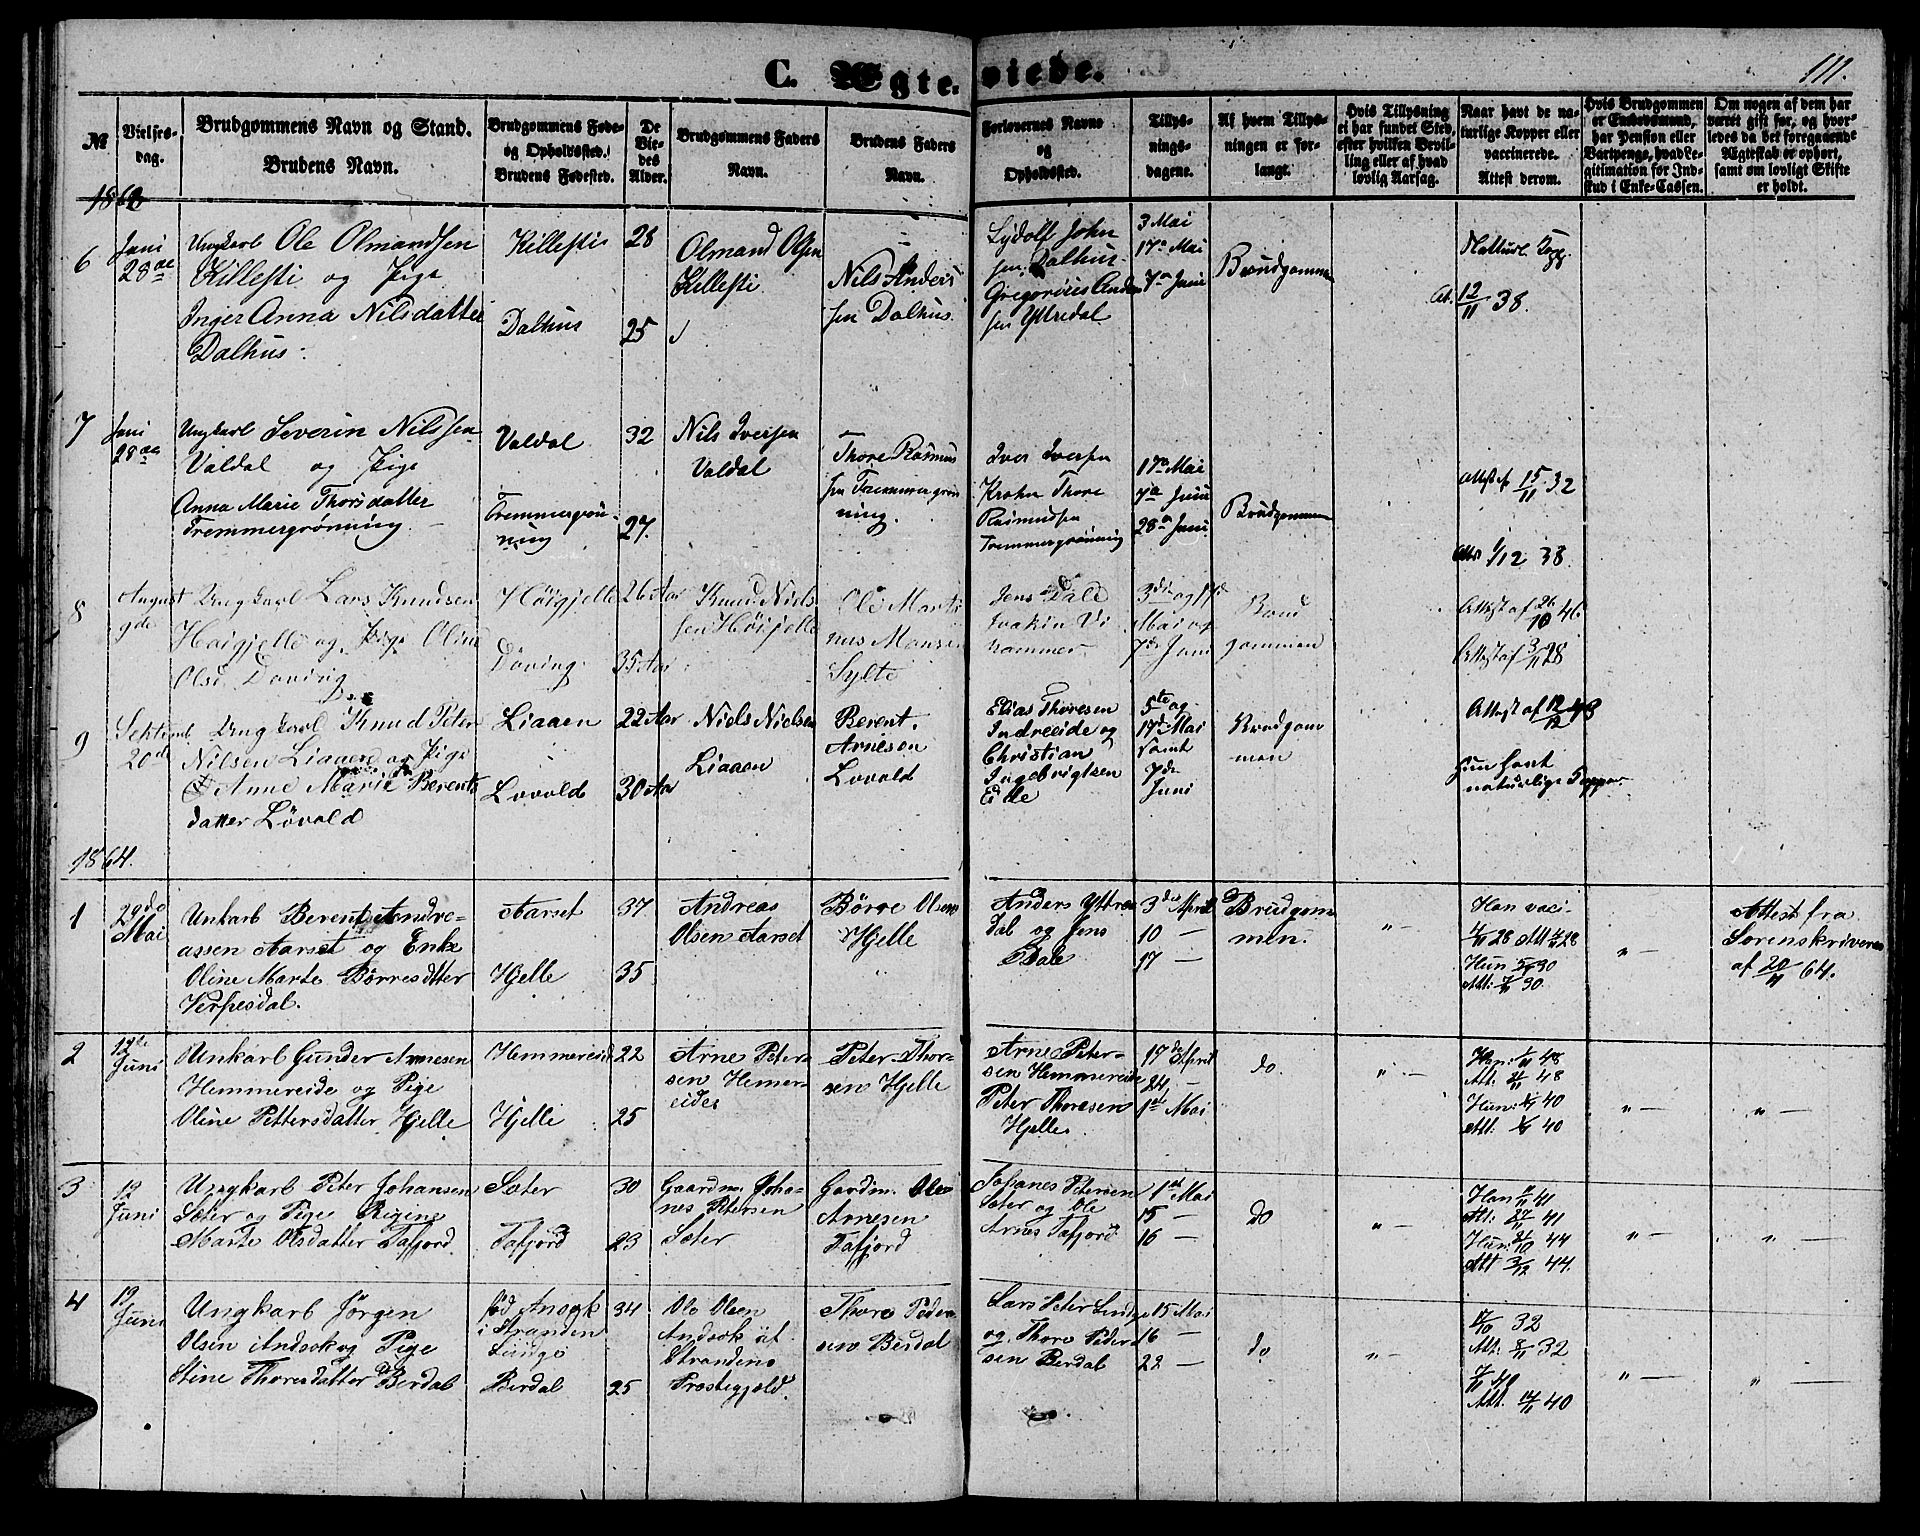 C. Ægte-viede.
111.
№
Vielses-dag.
Brudgommens Navn og Stand.
Brudens Navn.
Brudgommens Føde- og Opholdssted.
Brudens Fødested.
De Viedes Alder.
Brudgommens Faders Navn.
Brudens Faders Navn.
Forlovernes Navne og Opholdssted.
Tillysningsdagene.
Af hvem Tillysningen er forlangt.
Hvis Tillysning ei har fundet Sted, efter hvilken Bevilling eller af hvad lovlig Aarsag.
Naar havt de naturlige Kopper eller vaccinerede. Attest derom.
Hvis Brudgommen er Embedsmand, har Pension eller Vartpenge, hvad Legitimation for Indskud i Enke-Cassen.
Om nogen af dem har været gift før, og hvorledes da det foregaaende Ægteskab er ophørt, samt om lovligt Skifte er holdt.
6
Juni 28de
Ungkarl Ole Olmandsen
Killesti og Pige
Inger Anna Nilsdatter
Dalhus.
Killesti
Dalhus
28
25
Olmand Olsen
Killesti
Nils Anders
sen Dalhus.
Lydolf John
sen Dalhus.
Gregorius Ander
sen Yttredal
3 Mai
17de Mai
7de Juni
Brudgommen
Naturl. Kopp.
At. 12/11 38.
7
Juni 28de
Ungkarl Severin Nilssen
Valdal og Pige
Anna Marie Thorsdatter
Fremmergrønning.
Valdal
Fremmergrøn
ning
32
27.
Nils Iversen
Valdal
Thore Rasmus
sen Fremmergrøn
ning.
Iver Iversen
Krohn Thore
Rasmussen
Fremmergrønning
17de Mai
7de Juni
28de Juni
Brudgommen
Attest af 15/11 32
Att. 1/12 38
8
August 9de
Ungkarl Lars Knudsen
Høigjelle og Pige Oline
Olsd. Døving
Høigjelle
Døving
26 Aar
35 Aar
Knud Niels
sen Høigjelle
Ole Marti
nus Monsen
Sylte
Jens Dale
Joakin Vi
nammer
3die og 17de
Mai og
7de Juni
Brud
gommen
Attest af 26/10 46
Attest af 3/11 28
9
Septemb. 20de
Ungkarl Knud Peter
Nilsen Liaaen og Pige
Anne Marie Berents
datter Løvold
Liaaen
Lovold
22 Aar
30 Aar
Niels Nielsen
Liaaen
Berent
Arnesen
Lovold
Elias Thoresen
Indreeide og
Christian
Ingebrigtsen
Eide
5te og
17de Mai
samt
7de
Juni
Brudgom
men
Attest af 12/12 43
Hun havt
naturlige Kopper.
1864.
1
29de Mai
Unkarl Berent Andre-
assen Aarset og Enke
Oline Marte Børresdtter
Verpesdal.
Aarset
Hjelle
37
35
Andreas
Olsen Aarset
Børre Olsen
Hjelle
Anders Yttre
dal og Jens
Dale
3die April
10 —
17 —
Brudgom
men.
" —
Han vaci-
4/11 28 Att 4/11 28
Hun 5/9 30
Att: 7/11 30.
" —
Attest fra
Sorenskriveren
af 20/4 64.
2
12te Juni
Unkarl Gunder Arnesen
Hemmereide og Pige
Oline Pettersdatter Hjelle
Hemmereide
Hjelle
22
25
Arne Peter-
sen Hemer-
eide
Peter Thor-
sen Hjelle
Arne Peter-
sen Hemmereide
Peter Thoresen
Hjelle.
17de April
24 —
1ste Mai
do.
" —
Han: 48
Att: 48
Hun: 40
Att: 40
" —
" —
3
12 Juni
Ungkarl Peter Johansen
Sæter og Pige Birgine
Marte Olsdatter Tafjord.
Sæter
Tafjord
30
23
Gaardm. Joha-
nes Petersen
Sæter
Gardm. Ole
Arnesen
Tafjord
Johanes Petersen
Sæter og Ole
Arnes Tafjord
1ste Mai
15 —
16 —
do
" —
Han 41
Att: 27/11 41
Hun: 44
Att 3/12 44.
" —
" —
4
19 Juni
Ungkarl Jørgen
Olsen Andsok og Pige
Stine Thoresdatter Berdal
fød Ansok
i Stranden
Linge
Berdal
34
25
Ole Olsen
Andsok af
Strandens
Præstegjeld.
Thore Peder
sen Berdal
Lars Peter Linge
og Thore Peder
sen Berdal
15 Mai
16 —
22 —
do
" —
32
Att: 8/11 32
7/11 40
Att. 40
" —
" —